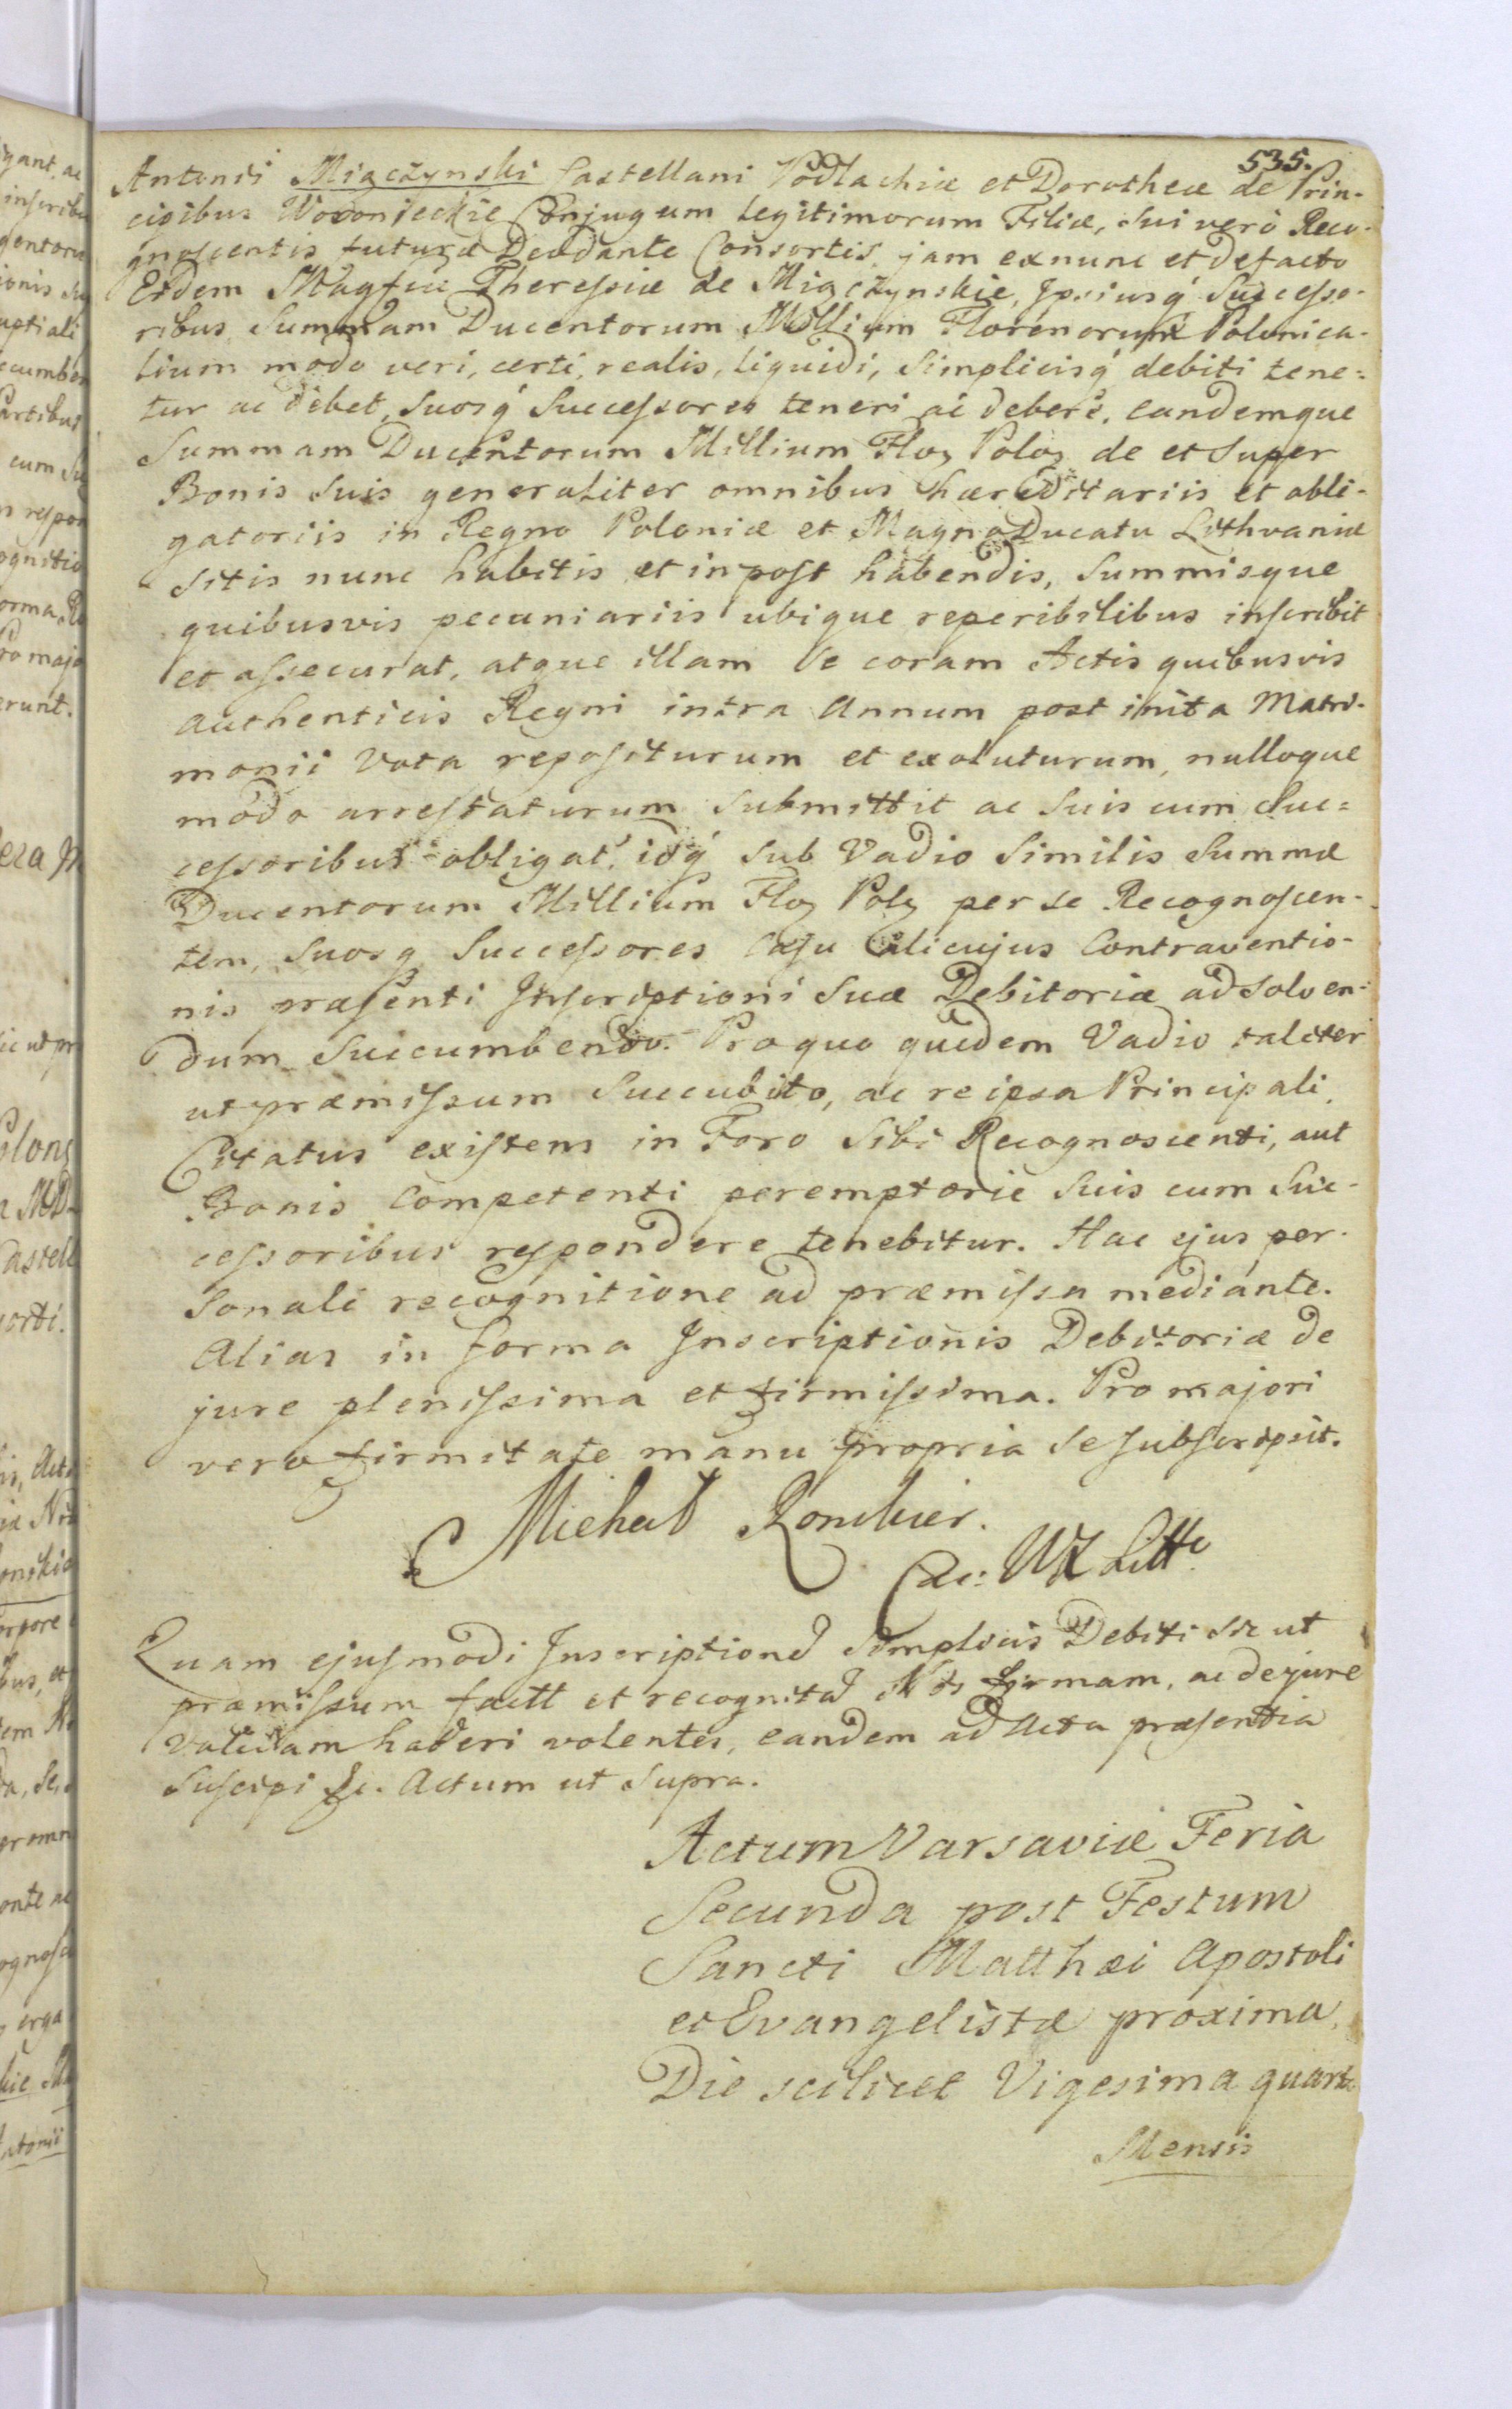 535.
Antonii Miączynski Castellani Podlachiæ et Dorotheæ de Prin-
cipibus Woronieckie Conjugum Legitimorum Filiæ, sui verò Reco-
gnoscentis futuræ Deo dante Consortis, jam exnunc et defacto
Eidem Magfcæ Theressiæ de Miączynskie, Ipsiusq́ Successo-
ribus Summam Ducentorum Millium Florenorum Polonica-
lium modo veri, certi, realis, liquidi, simplicisq́ debiti tene-
tur ac debet, suosq́ Successores teneri ac debere, eandemque
Summam Ducentorum Millium Floꝝ Poloꝝ de et super
Bonis suis generaliter omnibus hæreditariis et obli-
gatoriis in Regno Poloniæ et Magno Ducatu Lithvaniæ
sitis nunc habitis et inpost habendis, Summisque
quibusvis pecuniariis ubique reperibilibus inscribit
et assecurat, atque illam se coram Actis quibusvis
authenticis Regni intra Annum post inita Matri-
monii vota repositurum et exoluturum, nulloque
modo arrestaturum submittit ac suis cum Suc-
cessoribus obligat, idq́ sub Vadio similis Summæ
Ducentorum Millium Floꝝ Polꝝ per se Recognoscen-
tem, suosq Successores casu alicujus Contraventio-
nis præsenti Inscriptioni suæ Debitoriæ adsolven-
dum succumbendo. Pro quo quidem Vadio taliter
ut præmissum succubito, ac re ipsa Principali,
Citatus existens in Foro sibi Recognoscenti, aut
Bonis competenti peremptorie suis cum Suc-
cessoribus respondere tenebitur. Hac ejus per-
sonali recognitione ad præmissa mediante.
Alias in forma Inscriptionis Debitoriæ de
jure plenissima et firmissima. Pro majori
vero firmitate manu propria se subscripsit.
Michał Ronikier.
W X Litt
Quam ejusmodi Inscriptionẽ simplicis Debiti sic ut
præmissum factt et recognitã Nos firmam, ac dejure
validam haberi volentes, eandem ad Acta præsentia
suscipi &c. Actum ut supra.
Actum Varsaviæ Feria
Secunda post Festum
Sancti Matthæi Apostoli
et Evangelistæ proxima,
Die scilicet Vigesima quarta
Mensis